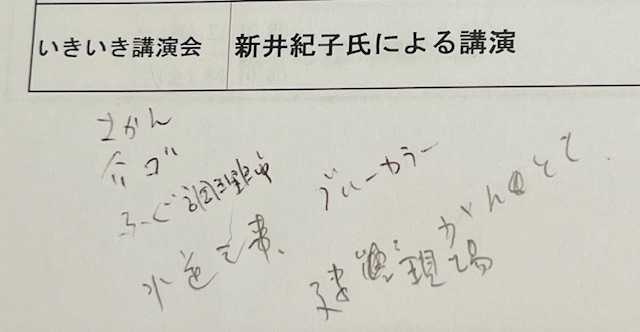 いきいき講演会 新井紀子氏による講演
さかん
介ゴ
ふぐ調理師
ブルーカラー
水道工事、
かんとく
建設現場